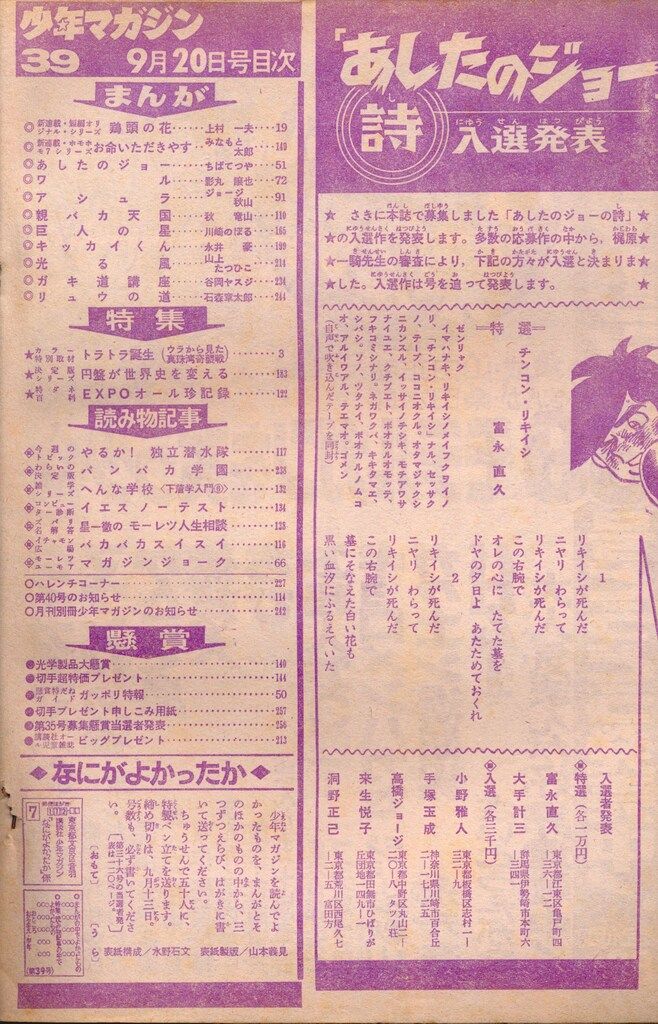 少年マガジン
39
9月20日号目次
まんが
◎新連載・短編オリジナル・シリーズ 鶏頭の花……上村一夫…19
◎新連載・ホモホモ7シリーズ お命いただきやす…みなもと太郎…140
◎あしたのジョー……ちばてつや…51
◎ワル……影丸譲也…72
◎アシュラ……ジョージ秋山…91
◎親バカ天国……秋竜山…110
◎巨人の星……川崎のぼる…165
◎キッカイくん……永井豪…199
◎光る風……山上たつひこ…214
◎ガキ道講座……谷岡ヤスジ…234
◎リュウの道……石森章太郎…244
特集
★カラー特別取材 トラトラ誕生(ウラから見た真珠湾奇襲戦)……3
★決定版シリーズ 円盤が世界史を変える……183
★特ダネ百科 EXPOオール珍記録……122
読み物記事
今週のトピック やるか! 独立潜水隊……117
わらいの決定版 パンパカ学園……238
雑学シリーズ へんな学校〈下落学入門⑧〉……132
コンピューター診断 イエスノーテスト……134
ズバリ名解答 星一徹のモーレツ人生相談……128
イチャモン広場 バカバカスイスイ……116
モーレツユーモア マガジンジョーク……66
○ハレンチコーナー……227
○第40号のお知らせ……114
○月刊別冊少年マガジンのお知らせ……242
懸賞
●光学製品大懸賞……140
●切手超特価プレゼント……144
●懸賞特だねガイド ガッポリ特報……50
●切手プレゼント申しこみ用紙……257
●第35号募集懸賞当選者発表……256
●講談社オール児童雑誌 ビッグプレゼント……213
◆なにがよかったか◆
少年マガジンを読んでよ
かったものを、まんがとそ
のほかのものの中から、三
つずつえらび、はがきに書
いて送ってください。
ちゅうせんで五十人に、
特製ペン立てを送ります。
締め切りは、九月十三日。
号数も、必ず書いてくださ
い。
〔第三十六号の当選者発
表は一二〇ページ〕
〔おもて〕
〔うら〕
7
東京都文京区音羽
講談社 少年マガジン
「なにがよかったか」係
(第39号)
表紙構成/水野石文 表紙製版/山本義見
「あしたのジョー
詩
入選発表
にゅうせんはっぴょう
★さきに本誌で募集しました「あしたのジョーの詩」★
★の入選作を発表します。多数の応募作の中から,梶原★
★一騎先生の審査により,下記の方々が入選と決まりま★
★した。入選作は号を追って発表します。★
特選
チンコン・リキイシ
富永直久
ゼンリャク
イマハナキ、リキイシノメイフクヲイノ
リ、「チンコン・リキイシ」ナル、セッサク
ノ、テープ、ココニオクル。オタマジャクシ
ニカンスル、イッサイノチシキ、モチアワサ
ナイユエ、クチブエト、ボオカルオモッテ、
フキコミシナリ。ネガワクバ、キキタマエ、
シバシ。ソノ、ツタナイ、ボオカルノムコ
オ、アルイワアル、テエマオ。ゴメン
(自声で吹き込んだテープを同封)
1
リキイシが死んだ
ニヤリ わらって
リキイシが死んだ
この右腕で
オレの心に たてた墓を
ドヤの夕日よ あたためておくれ
2
リキイシが死んだ
ニヤリ わらって
リキイシが死んだ
この右腕で
墓にそなえた白い花も
黒い血汐にふるえていた
入選者発表
◉特選(各一万円)
富永直久 東京都江東区亀戸町四―三六―一二
大手計三 群馬県伊勢崎市本町六
◉入選(各三千円)
小野雅人 東京都板橋区志村一―三二―九
手塚玉成 神奈川県川崎市百合丘二―一七―二五
高橋ジョージ 東京都中野区丸山二―二〇―八 タツノ荘
来生悦子 東京都田無市ひばりが丘団地一四九―一
洞野正己 東京都荒川区西尾久七―二―五 富田方